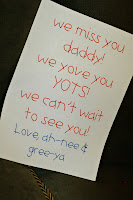 we miss you
daddy!
we yove you
YOTS!
we can't wait
to see you!
Love, ah-nee &
gree-ya